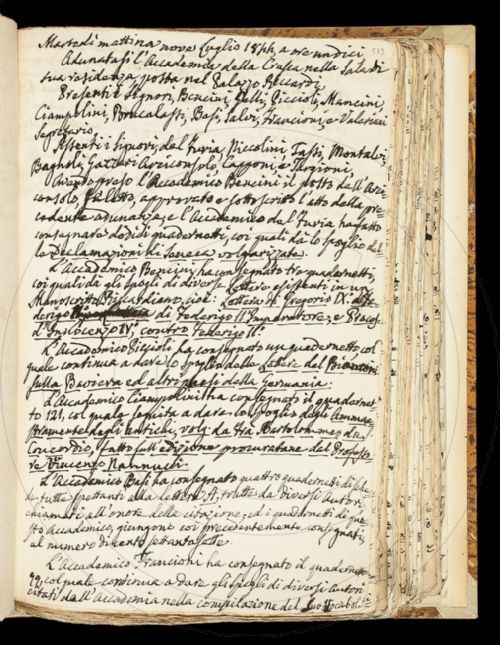 Martedì mattina nove Luglio 1844, a ore undici
Adunatasi l'Accademia della Crusca nella Sala di
sua residenza, posta nel Palazzo Riccardi,
Presenti i Signori, Bencini, Gelli, Piccioli, Mancini,
Ciampolini, Brucalassi, Basi, Salvi, Francioni, e Valeriani
Segretario,
Assenti i Signori, del Furia, Niccolini, Tassi, Montalvi,
Bagnoli, Gazzeri Arciconsolo, Capponi, e Targioni,
Avendo preso l'Accademico Bencini il posto dell'Arci-
consolo, fu letto, approvato e sottoscritto l'atto della pre-
cedente adunanza; e l'Accademico del Furia ha fatto
consegnare dodici quadernetti, coi quali dà lo spoglio del-
le Declamazioni di Seneca volgarizzate.
L'Accademico Bencini, ha consegnato tre quadernetti,
coi quali dà gli spogli di diverse Lettere esistenti in un
Manoscritto Riccardiano, cioè: Lettera di Gregorio IX. a Fe-
derigo di Federigo II. Imperatore, e Proces-
so d'Innocenzo IV. contro Federigo II.
L'Accademico Piccioli ha consegnato un quadernetto, col
quale continua a dare lo spoglio delle Lettere del Bianconi
sulla Baviera ed altri paesi della Germania.
L'Accademico Ciampolini ha consegnati il quadernet-
to 121, col quale seguita a dare lo spoglio degli Ammae-
stramenti degli Antichi, volg. da Fra Bartolommeo da S.
Concordio, fatto sull'edizione procurata dal Professo-
re Vincenzo Nannucci.
L'Accademico Basi ha consegnato quattro quadernetti di sche-
de tutte spettanti alla lettera A, tratte da diversi Autori
chiamati all'onore della citazione; ed i quadernetti di que-
sto Accademico, giungono coi precedentemente consegnati,
al numero di cento settantasette.
L'Accademico Francioni ha consegnato il quadernetto
col quale continua a dare gli spogli di diversi Autori
citati dall'Accademia nella compilazione del suo Vocabol-